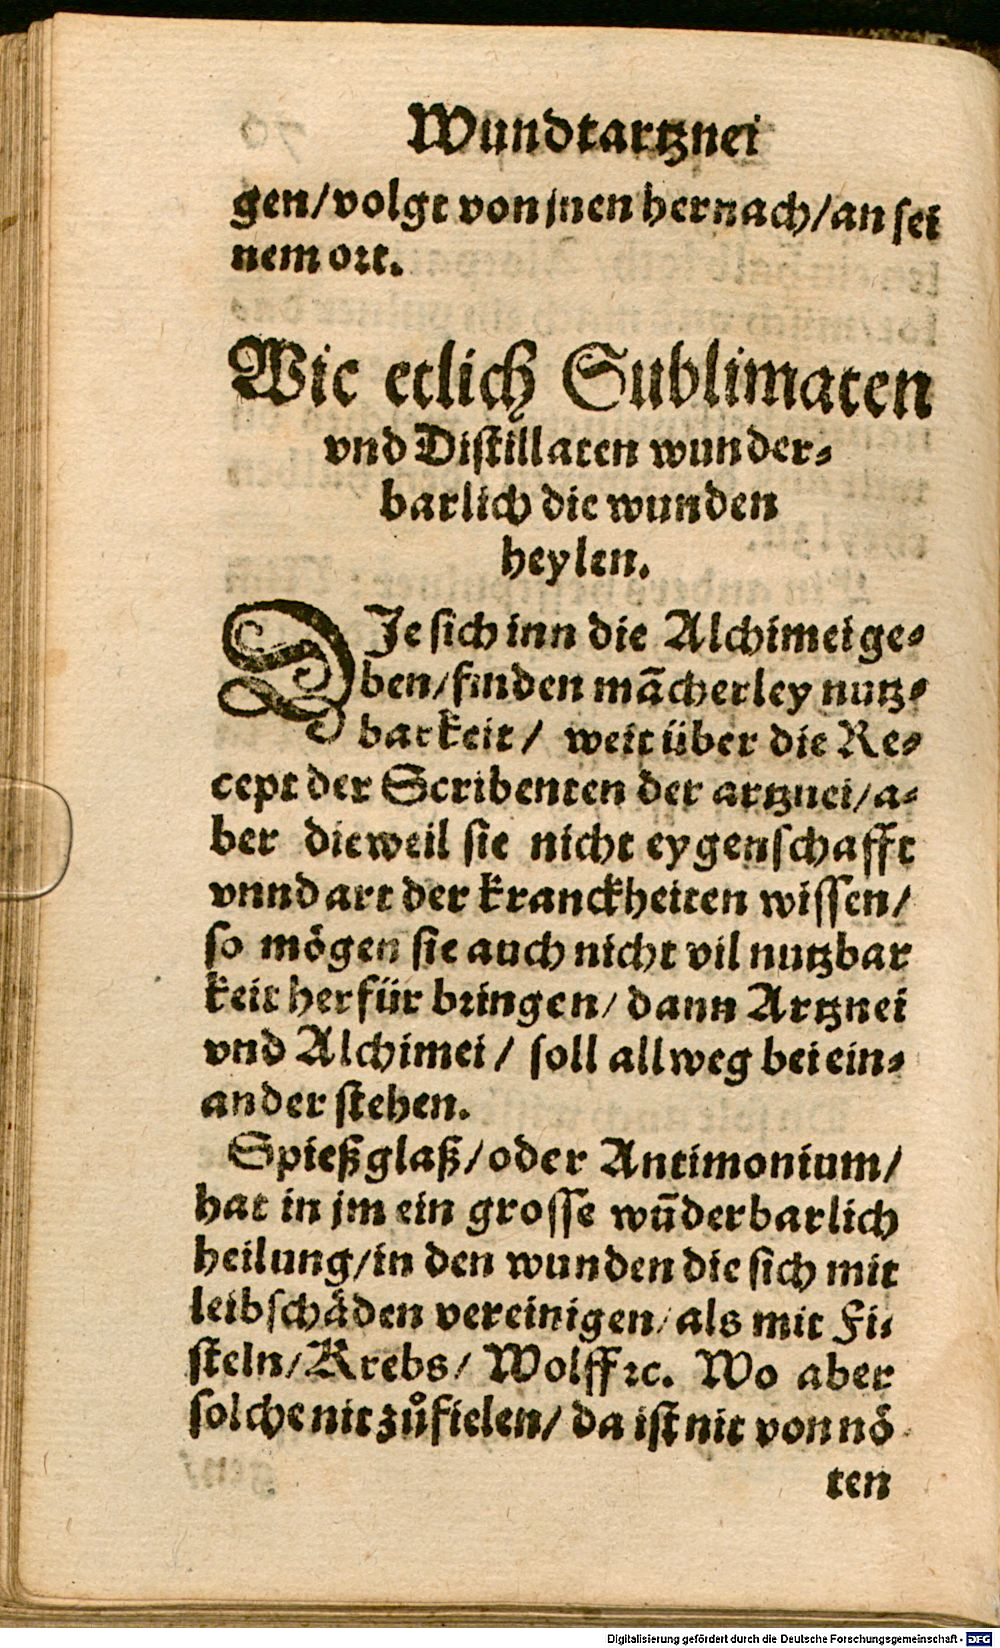 Wundtartznei
gen/volgt von jnen hernach/an sei
nem ort.
Wie etlich Sublimaten
vnd Distillaten wunder⸗
barlich die wunden
heylen.
DJe sich inn die Alchimei ge⸗
ben/finden mãcherley nutz⸗
barkeit/ weit über die Re⸗
cept der Scribenten der artznei/a⸗
ber dieweil sie nicht eygenschafft
vnnd art der kranckheiten wissen/
so mögen sie auch nicht vil nutzbar
keit herfür bringen/ dann Artznei
vnd Alchimei/ soll allweg bei ein⸗
ander stehen.
Spießglaß/oder Antimonium/
hat in jm ein grosse wũderbarlich
heilung/in den wunden die sich mit
leibschäden vereinigen/als mit Fi⸗
steln/Krebs/ Wolff ꝛc. Wo aber
solche nit zůfielen/ da ist nit von nö
ten
Digitalisierung gefördert durch die Deutsche Forschungsgemeinschaft - DFG